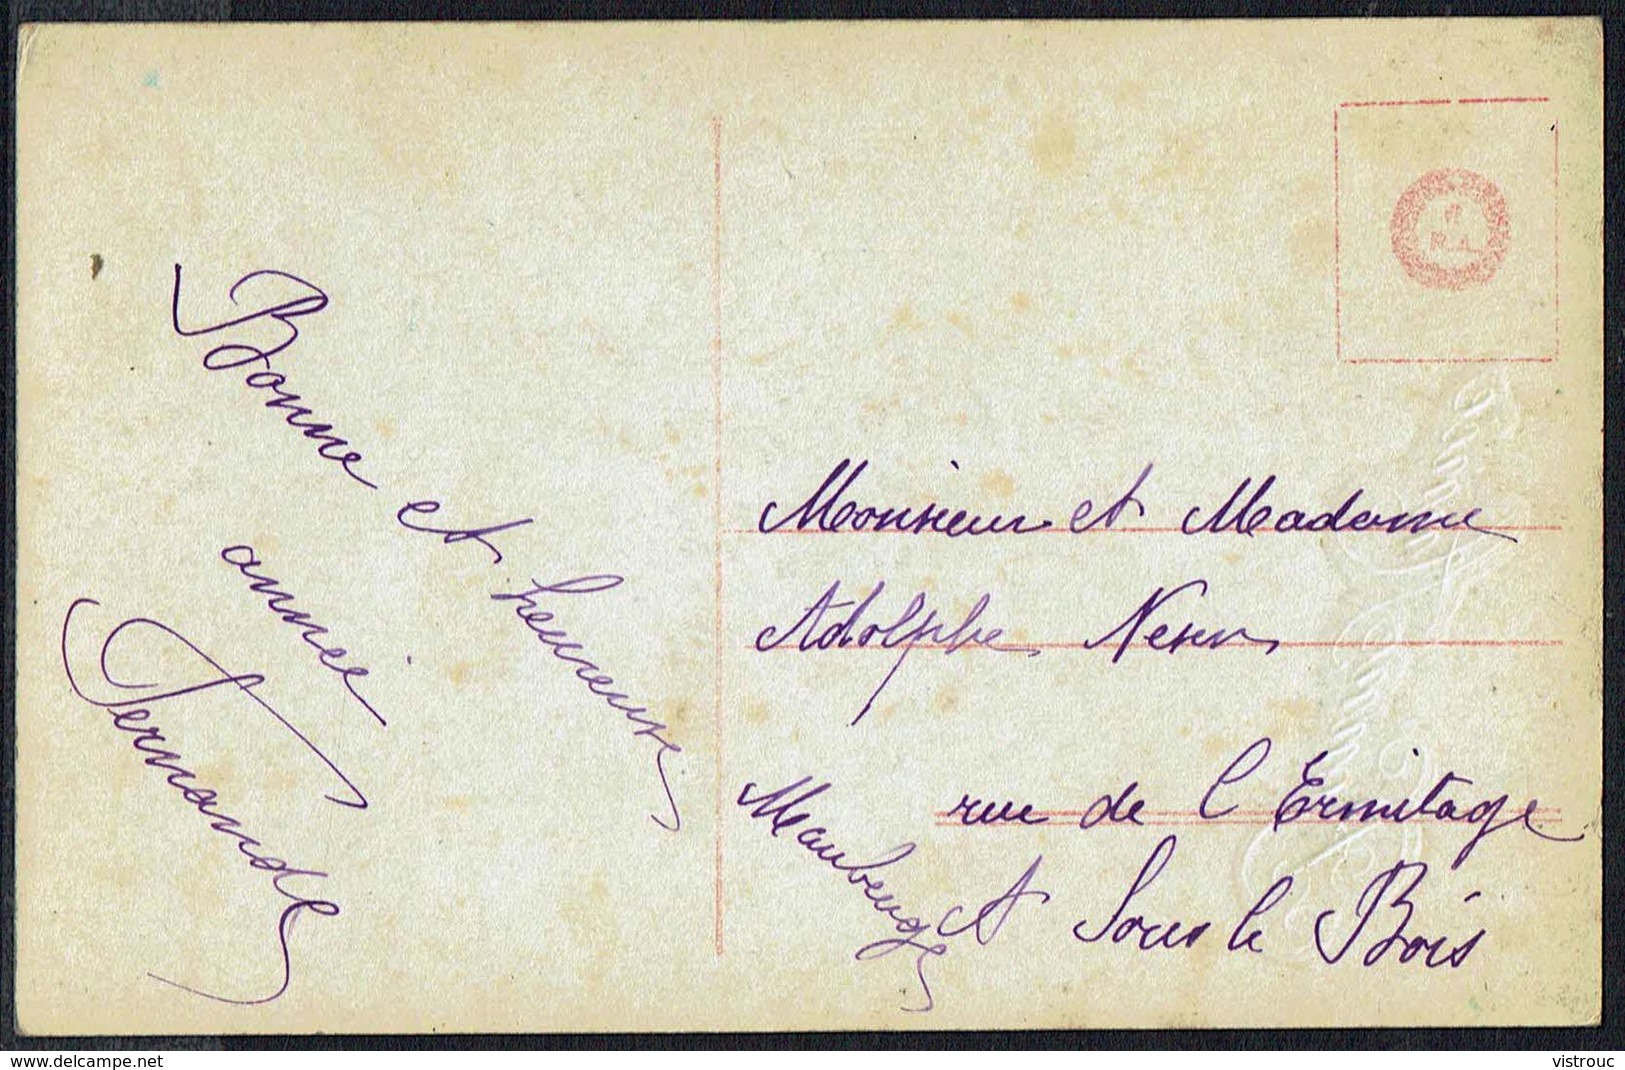 Bonne et heureuse
année
Fernande
Monsieur et Madame
Adolphe
rue de l'Ermitage
A Sous le Bois
Maubeuge
www.delcampe.net
vistrouc